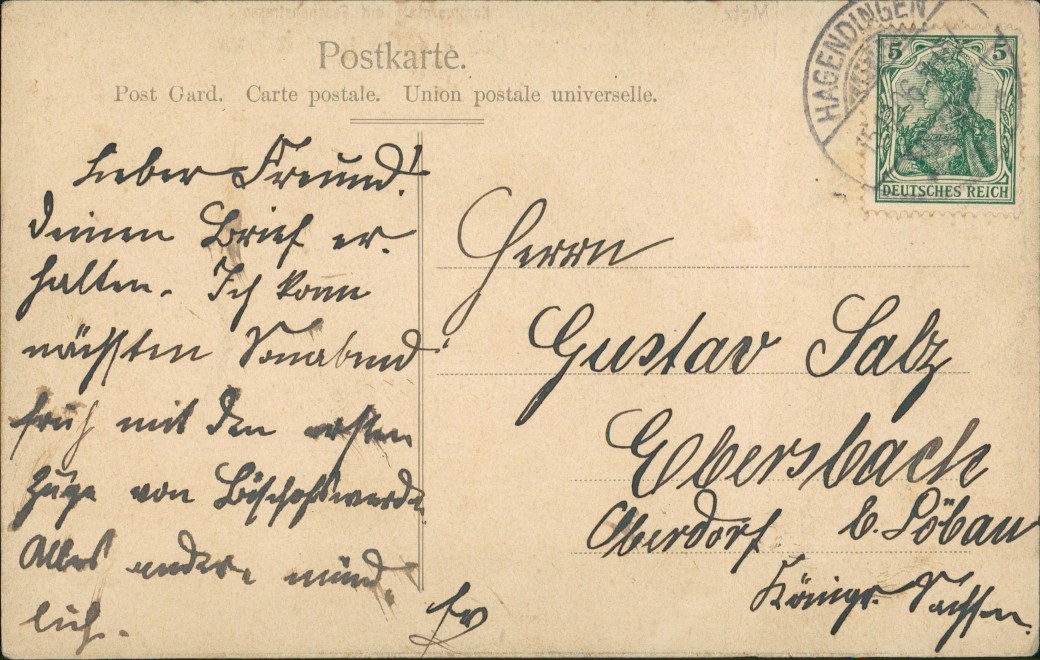 Postkarte.
Post Card. Carte postale. Union postale universelle.
HAGENDINGEN
5 5
DEUTSCHES REICH
Lieber Freund!
Deinen Brief er-
halten. Ich komm
nächsten Sonnabend
früh mit den ersten
Zuge von Bischofswerda
Alles andere münd-
lich.
Herrn
Gustav Salz
Ebersbach
Oberdorf b. Löbau
Königr. Sachsen.